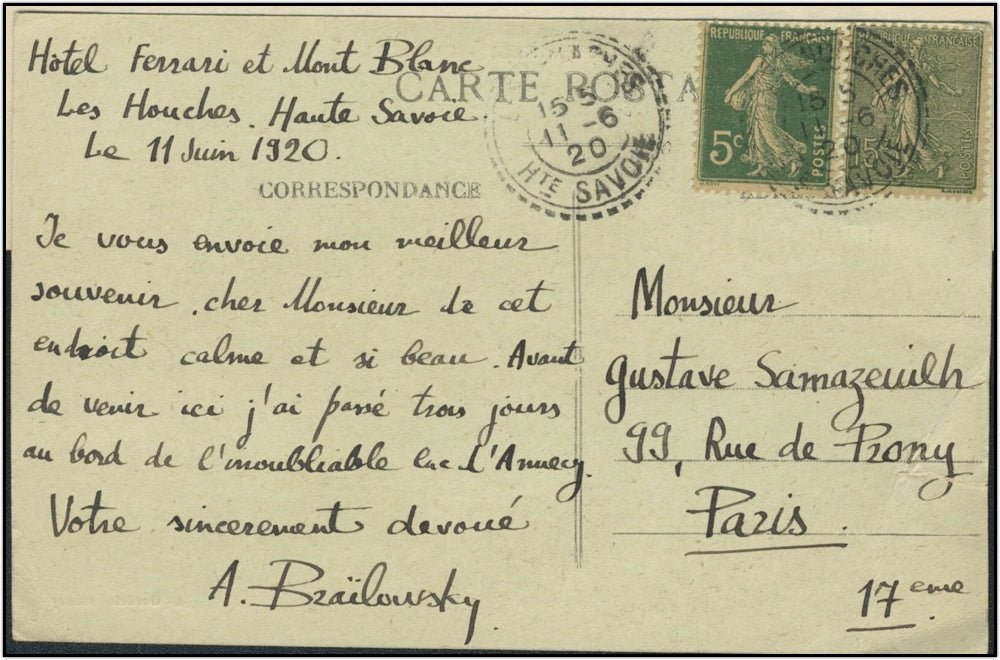 Hôtel Ferrari et Mont Blanc
Les Houches. Haute Savoie.
Le 11 Juin 1920.
CARTE POSTA
CORRESPONDANCE
Je vous envoie mon meilleur
souvenir, cher Monsieur de cet
endroit calme et si beau. Avant
de venir ici j'ai passé trois jours
au bord de l'inoubliable lac d'Annecy.
Votre sincerement devoué
A. Braïlowsky
15 5
11 -6
20
Hte SAVOIE
REPUBLIQUE FRANÇAISE
5c
POSTES
REPUBLIQUE FRANÇAISE
15c
POSTES
Monsieur
Gustave Samazeuilh
99, Rue de Prony
Paris.
17eme